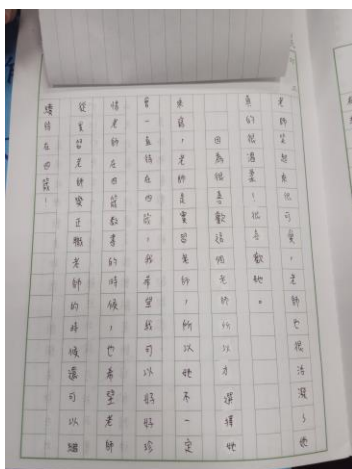 老師笑起來也可愛，老師也很活潑，她
真的很溫柔！很喜歡她。
因為很喜歡這個老師所以才選擇她
來寫，老師是實習老師，所以她不一定
會一直待在四箴，我希望我可以好好珍
惜老師在四箴教書的時候，也希望老師
從實習老師變正職老師的時候還可以繼
續待在四箴！